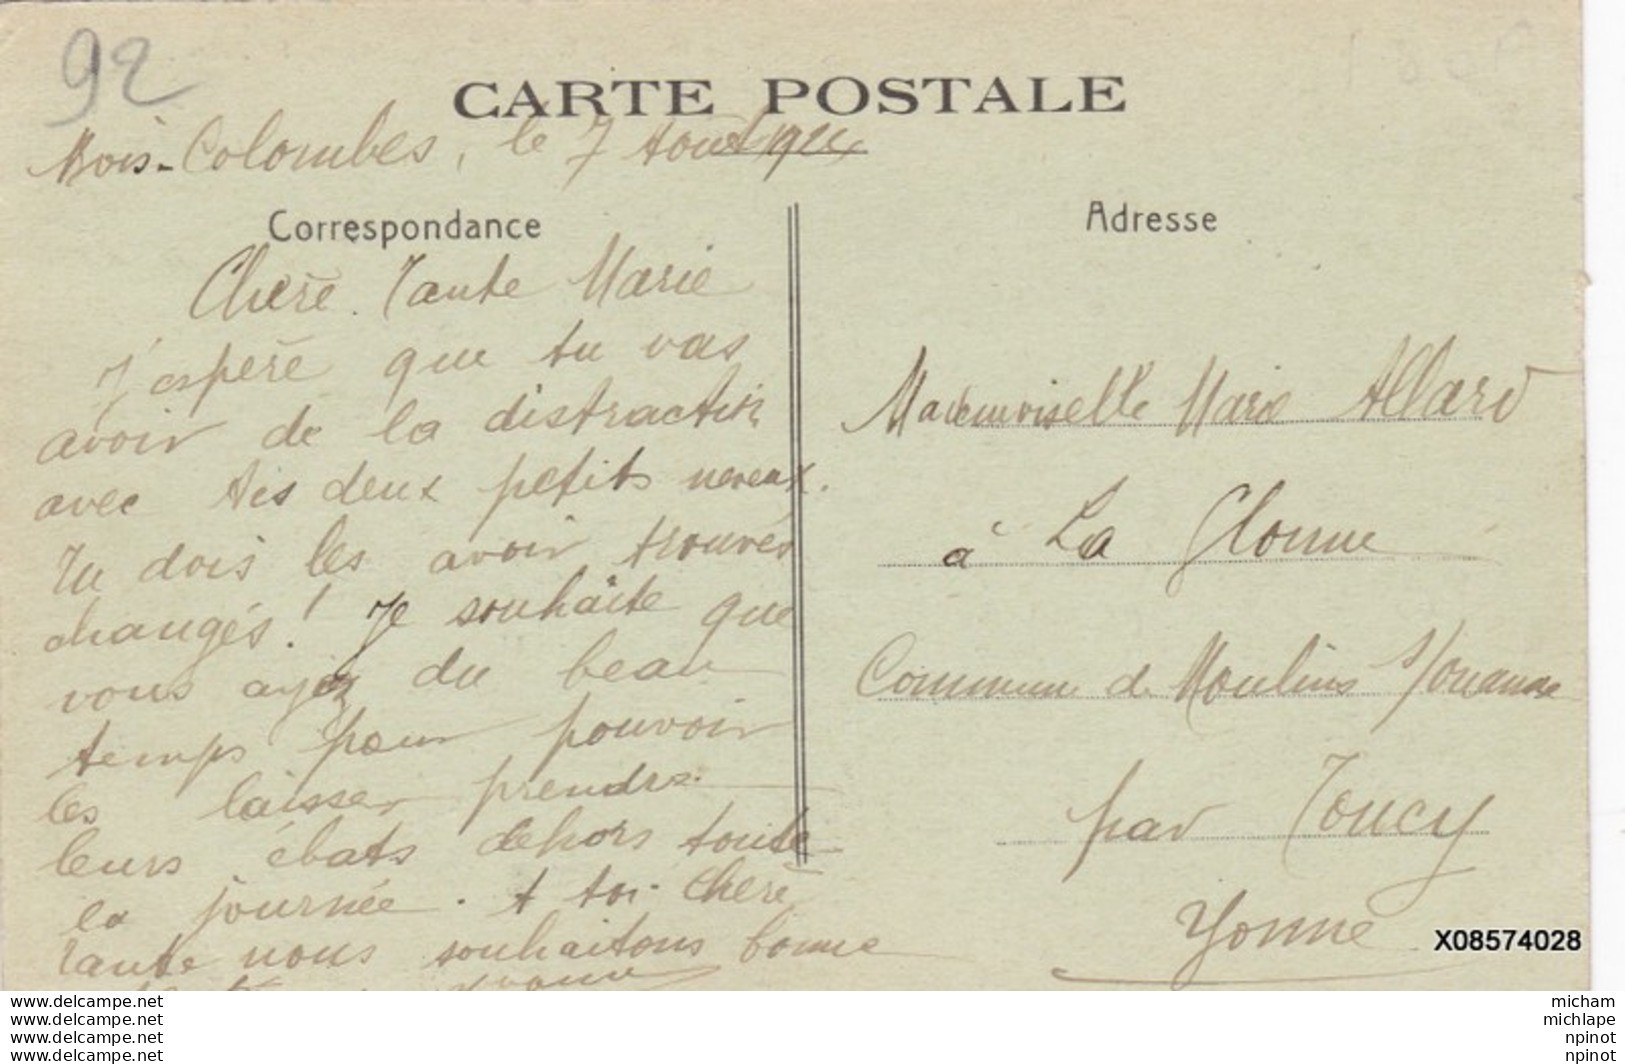 92
CARTE POSTALE
Bois-Colombes, le 7 Août 1924
Correspondance
Chère Tante Marie
J'espère que tu vas
avoir de la distraction
avec tes deux petits neveux.
Tu dois les avoir trouvés
changés! Je souhaite que
vous ayez du beau
temps pour pouvoir
les laisser prendre
leurs ébats dehors toute
la journée. A toi chère
tante nous souhaitons bonne
Adresse
Mademoiselle Marie Allard
à La Glonne
Commune de Moulins s/ouanne
par Toucy
Yonne
X08574028
www.delcampe.net
www.delcampe.net
www.delcampe.net
www.delcampe.net
micham
michlape
npinot
npinot